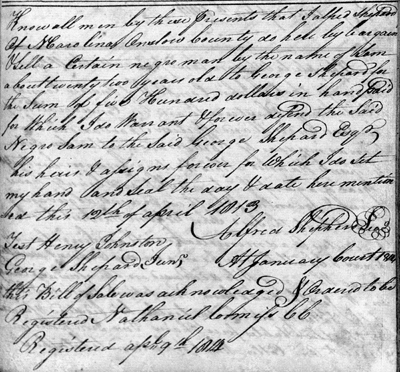 Know all men by these Presents that I Alfred Shepard
Of N Carolina Onslow County do here by bargain
& sell a Certain negro man by the name of Sam
about twenty two years old to George Shepard for
the Sum of five Hundred dollars in hand paid
for Which I do Warrant & forever defend the Said
Negro Sam to the Said George Shepard Esqr
his heirs & assigns forever for Which I do Set
my hand and Seal the day & date here mention
ed this 12th of april 1813
Alfred Shepherd Seal
Test Henry Johnston
George Shepard Junr
At January Court 1814
this Bill of Sale was acknowledged & Ordered to be
Registered Nathaniel CC
Registered apl 9th 1814